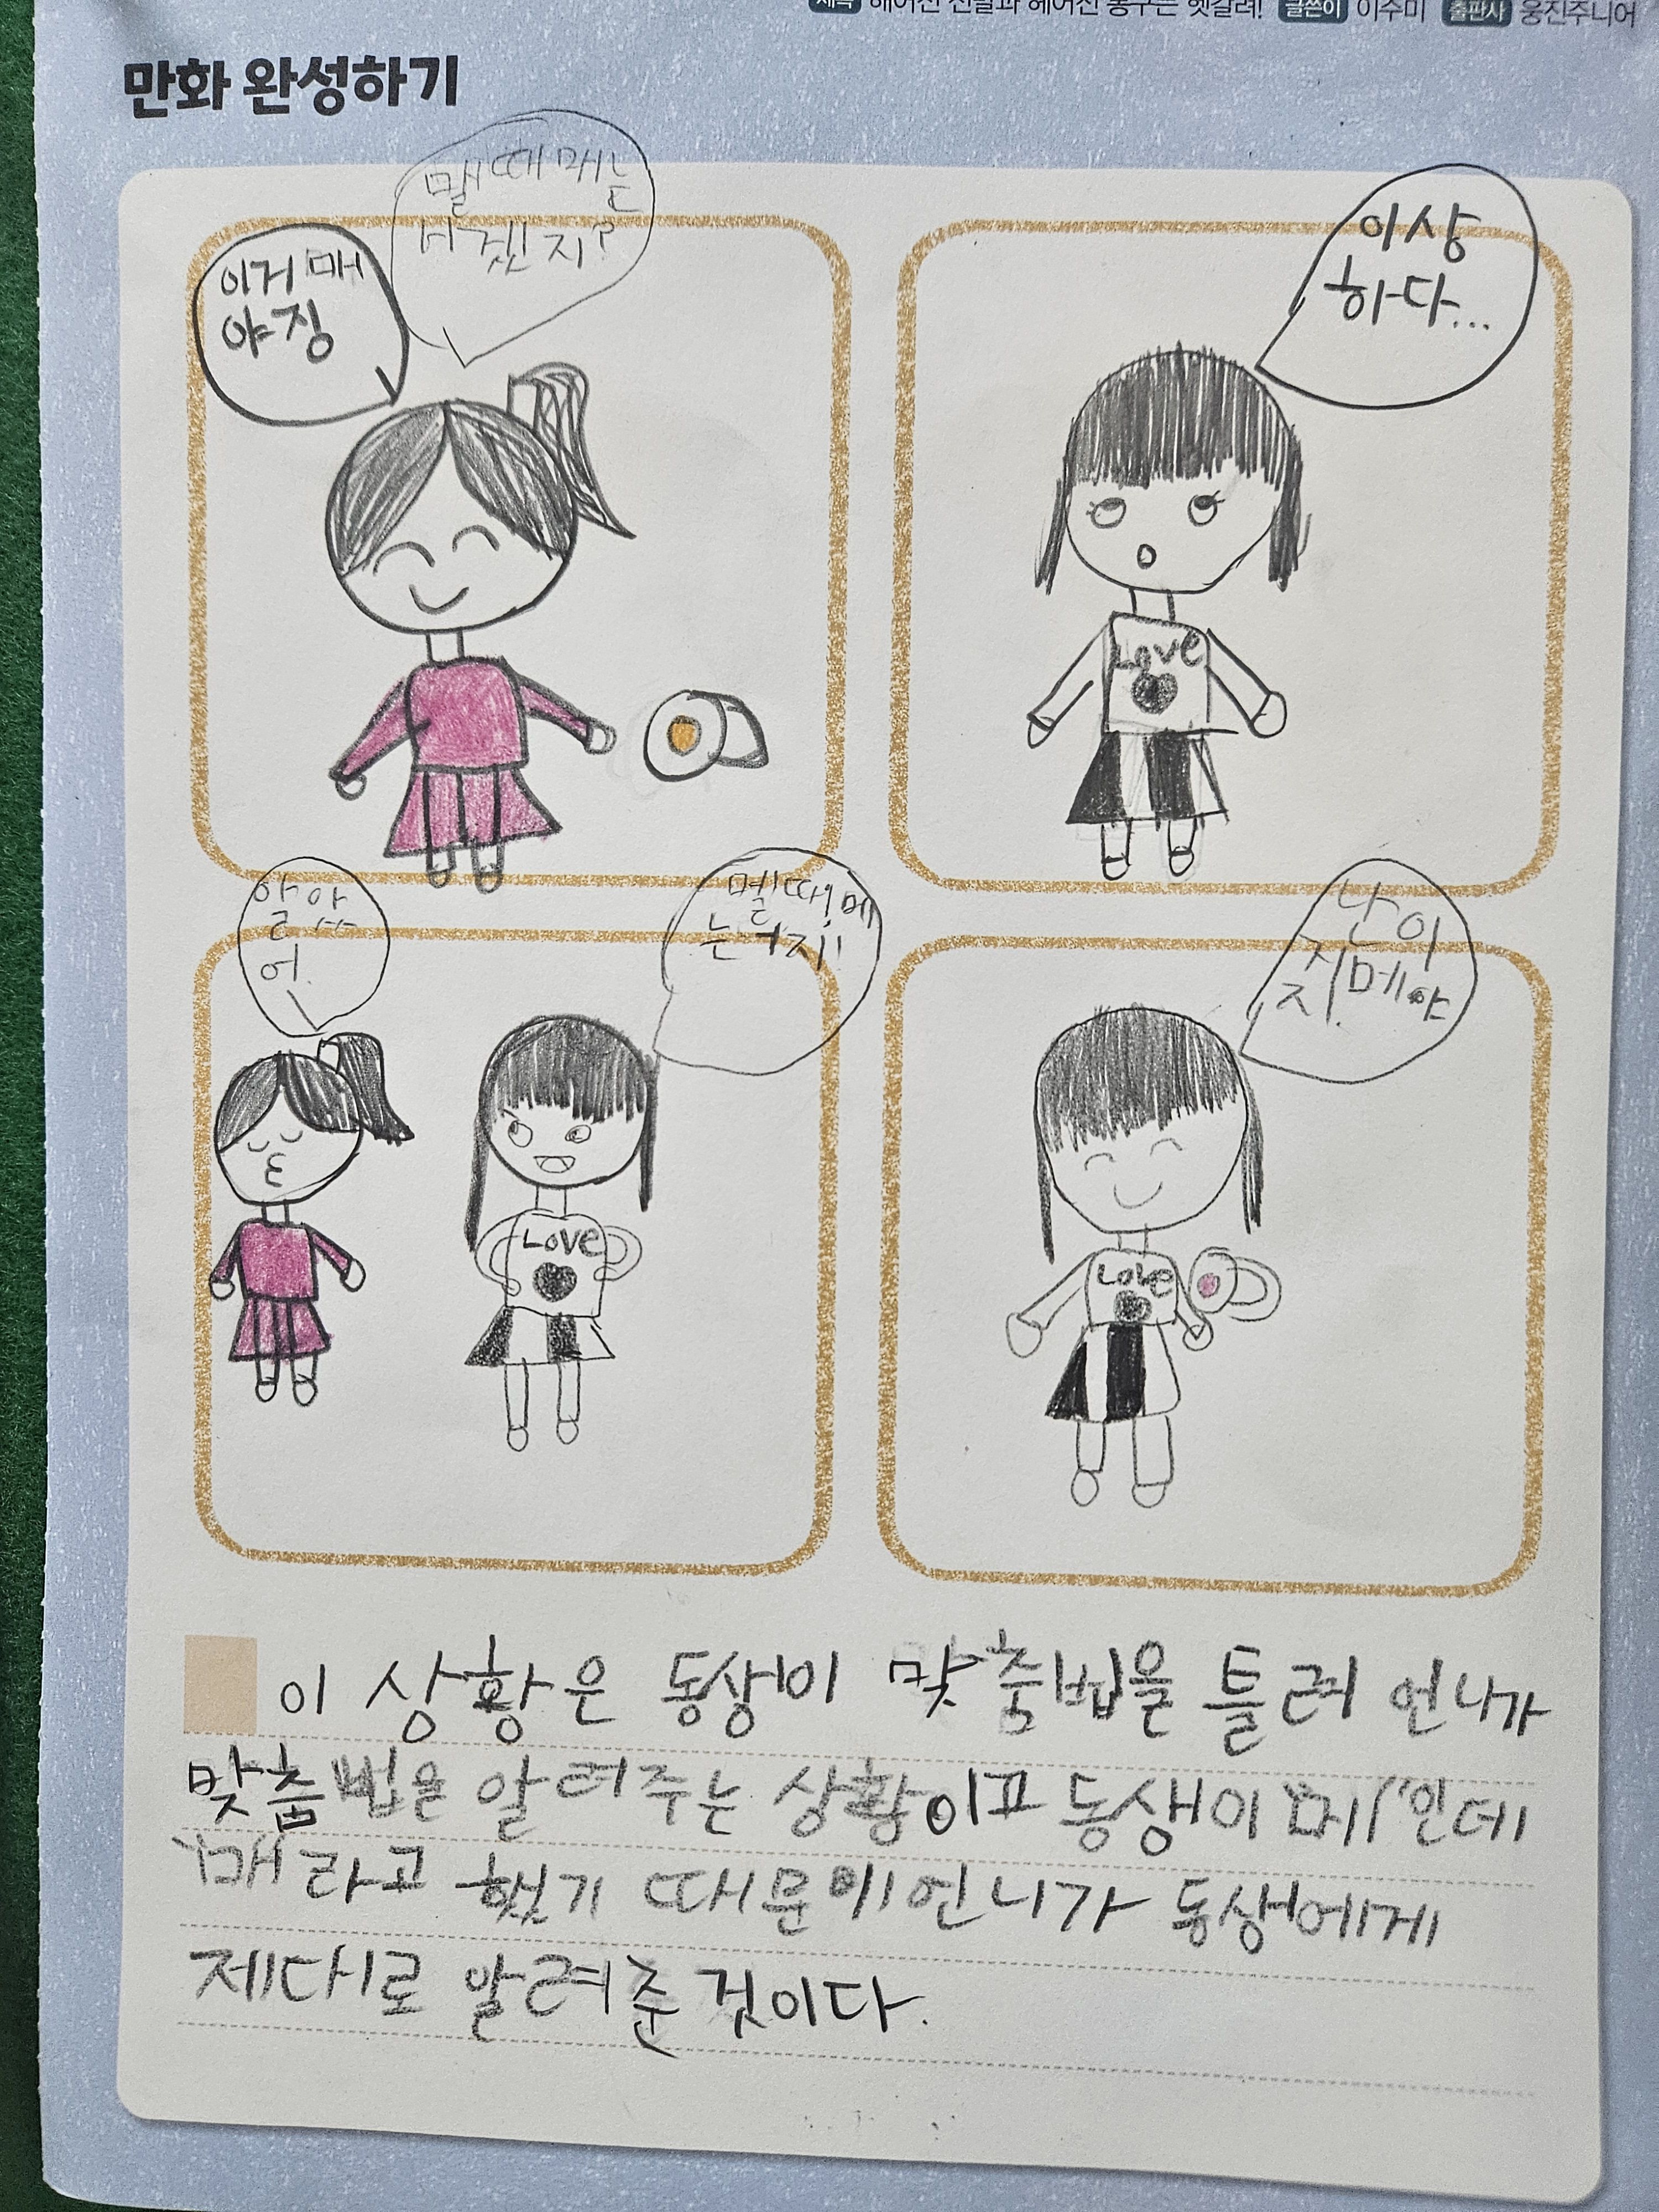 제목 해어진 신발과 헤어진 봉구는 헷갈려! 글쓴이 이주미 출판사 웅진주니어
만화 완성하기
이거 매
야징
멜 때 메는
거겠지?
이상
하다...
알았
어.
멜 때! 메
는 거지!
난 이
지 메야
Love
Love
Love
이 상황은 동생이 맞춤법을 틀려 언니가
맞춤법을 알려주는 상황이고 동생이 '메' 인데
'매'라고 했기 때문에 언니가 동생에게
제대로 알려준 것이다.